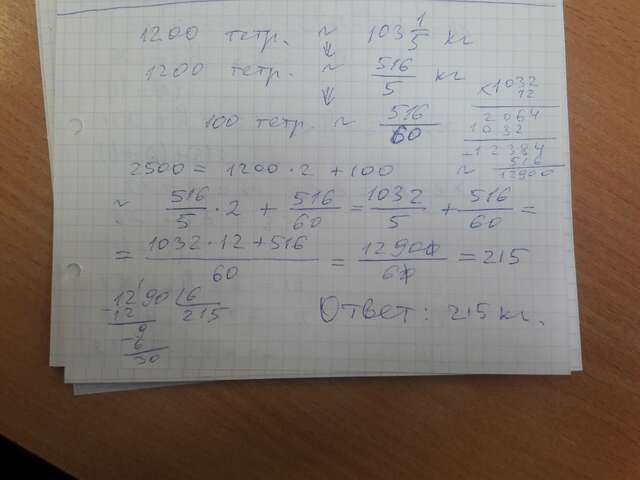 1200 тетр. ~ 103 1/5 кг
1200 тетр. ~ 516/5 кг
100 тетр. ~ 516/60
×1032
12
2064
1032
12384
516
12900
2500 = 1200·2 + 100 ~
~ 516/5 · 2 + 516/60 = 1032/5 + 516/60 =
= (1032·12+516)/60 = 12900/60 = 215
1290 6
-12 215
9
-6
30
Ответ: 215 кг.